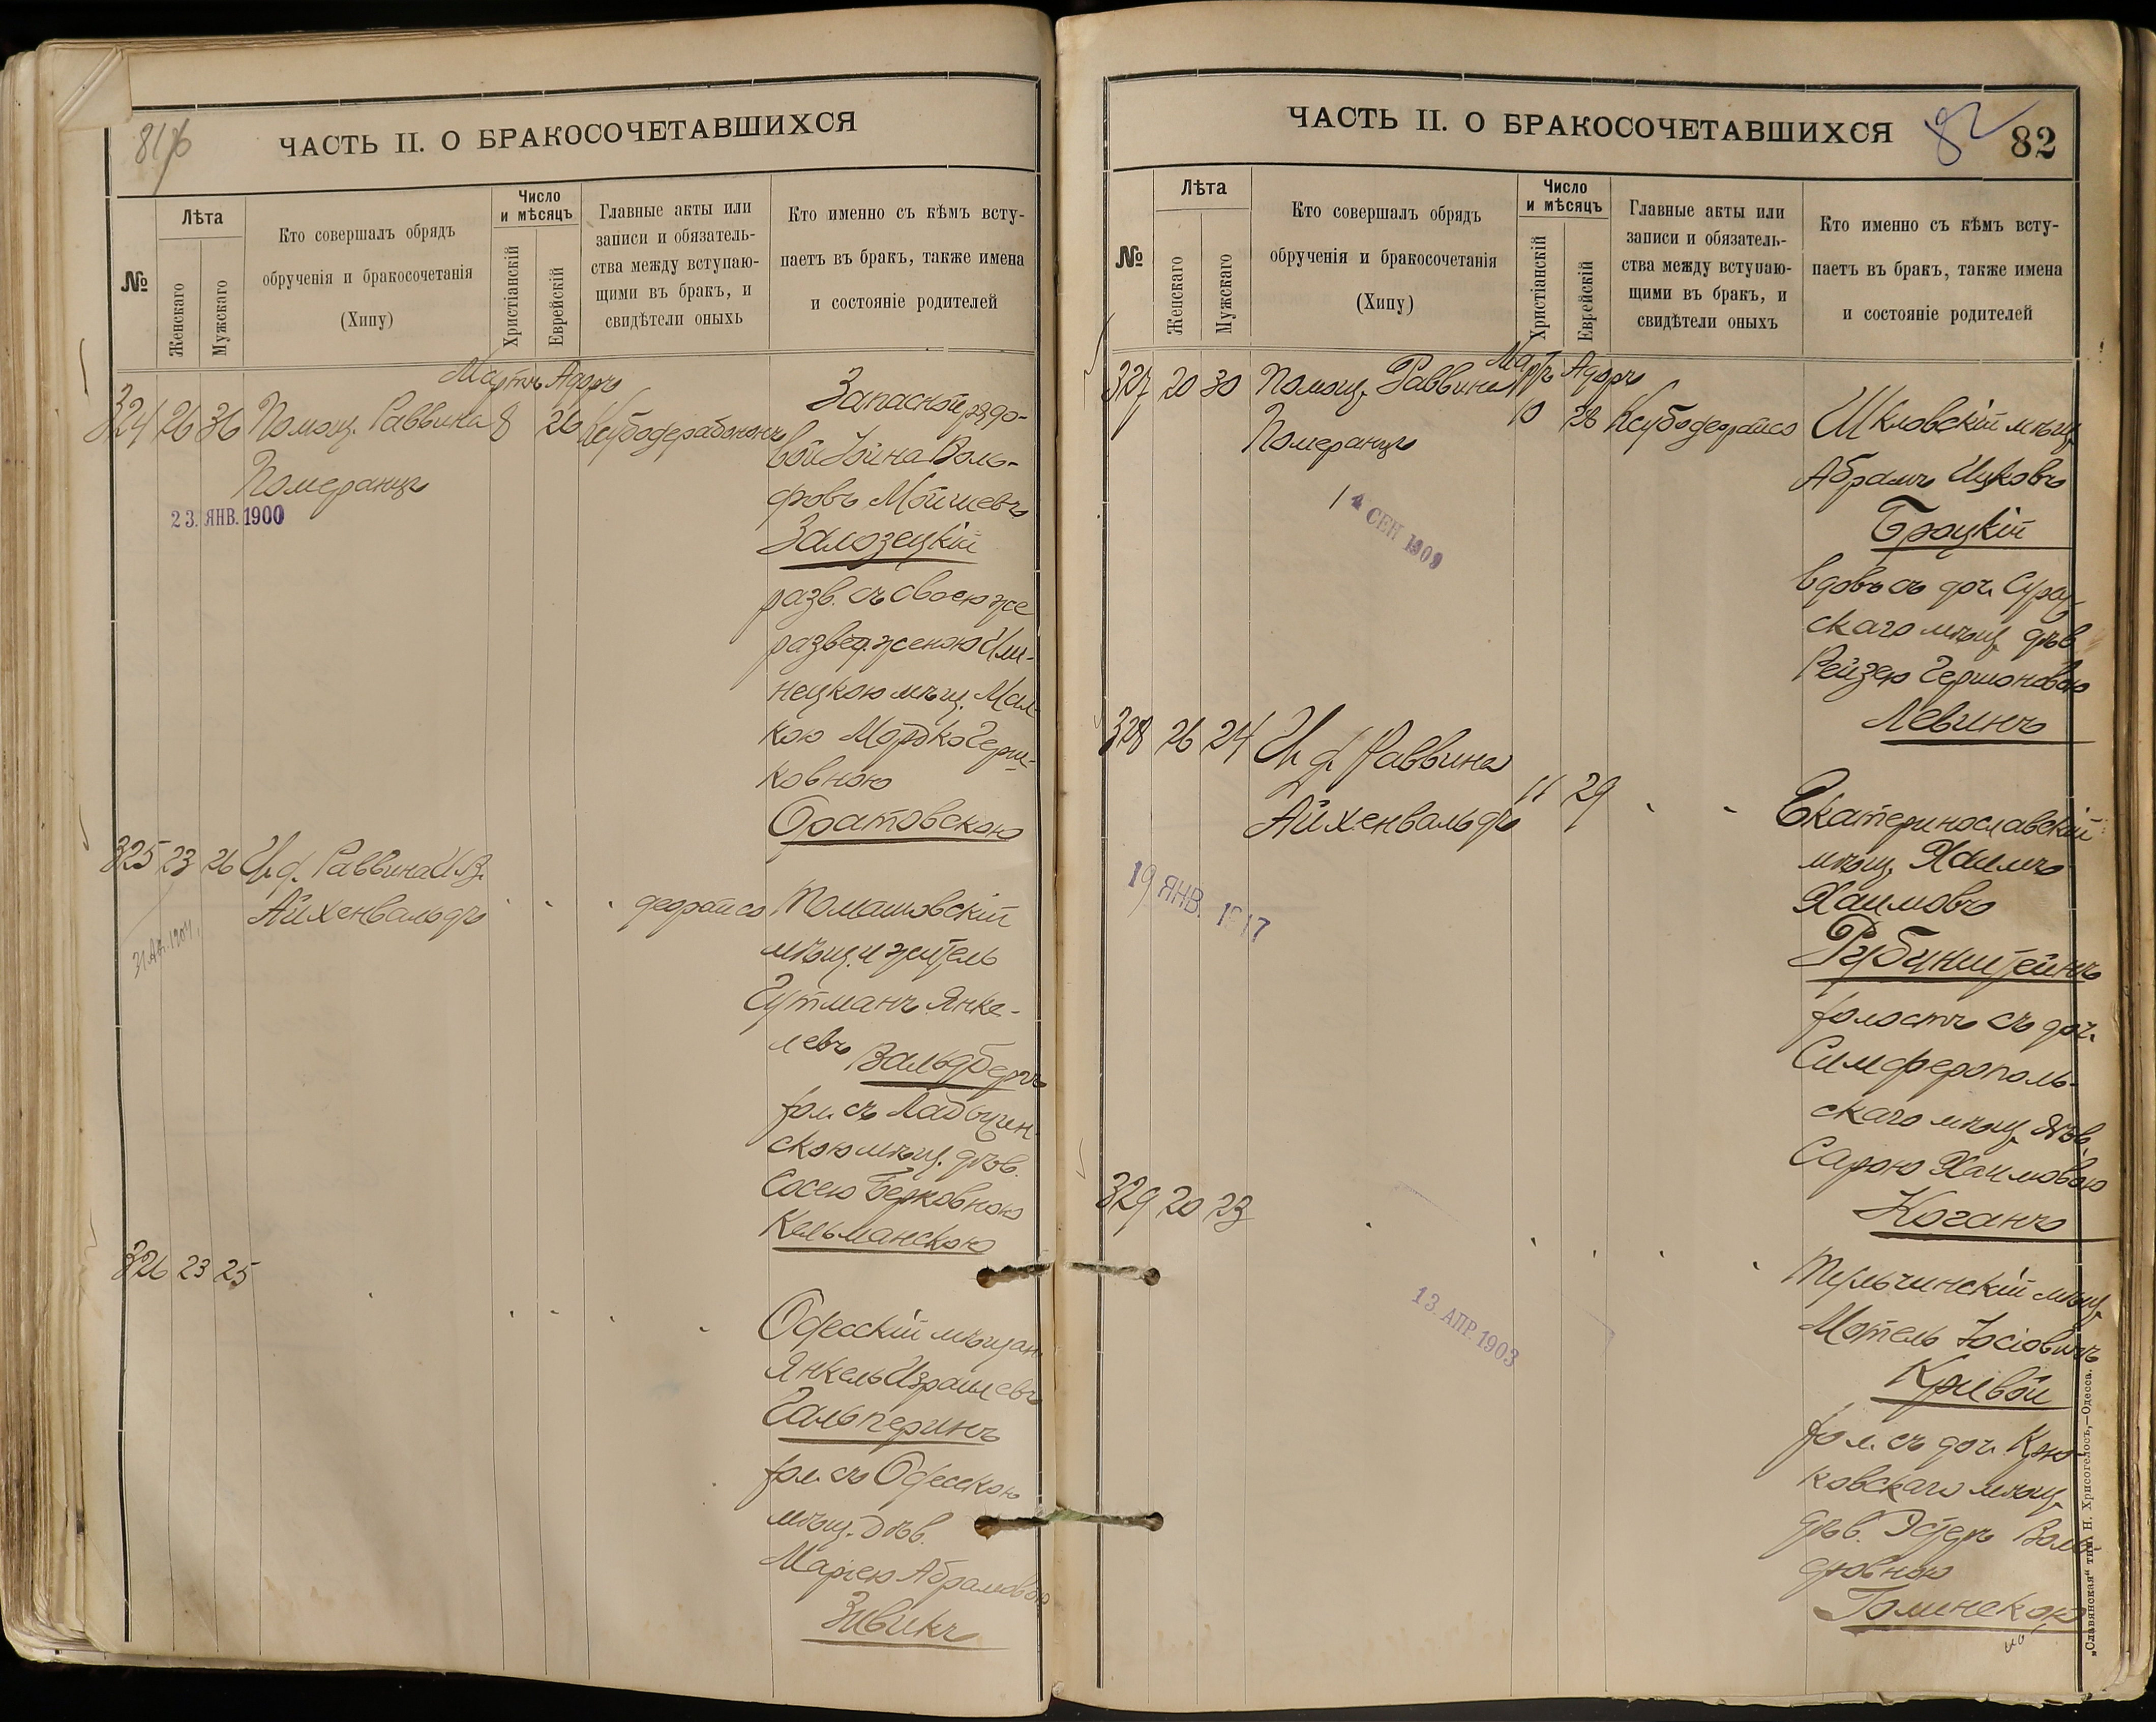 81 об
ЧАСТЬ II. О БРАКОСОЧЕТАВШИХСЯ
№
Лѣта
Женскаго
Мужскаго
Кто совершалъ обрядъ
обрученія и бракосочетанія
(Хипу)
Число
и мѣсяцъ
Христіанскій
Еврейскій
Главные акты или
записи и обязатель-
ства между вступаю-
щими въ бракъ, и
свидѣтели оныхъ
Кто именно съ кѣмъ всту-
паетъ въ бракъ, также имена
и состояніе родителей
Мартъ Адаръ
324 26 36 Помощ. Раввина 8 26
Померанцъ
23. ЯНВ. 1900
Запасной рядо-
вой Іойна Воль-
фовъ Мошиевъ
Залозецкій
разв. съ своею же
развед. женою Или-
нецкою мѣщ. Мал-
кою Мордко Герш-
ковною
Оратовскою
325 23 26 И. д. Раввина И. З.
Айхенвальдъ
деорайсо
Томашовскій
мѣщ. и житель
Гутманъ Янке-
левъ Вальдбергъ
хол. съ Ладыжен
скою мѣщ. дѣв.
Сосею Берковною
Кельманскою
326 23 25
Одесскій мѣщан.
Янкель Израилевъ
Гальперинъ
хол. съ Одесскою
мѣщ. дѣв.
Маріею Абрамовою
Зивикъ
ЧАСТЬ II. О БРАКОСОЧЕТАВШИХСЯ
82
82
№
Лѣта
Женскаго
Мужскаго
Кто совершалъ обрядъ
обрученія и бракосочетанія
(Хипу)
Число
и мѣсяцъ
Христіанскій
Еврейскій
Главные акты или
записи и обязатель-
ства между вступаю-
щими въ бракъ, и
свидѣтели оныхъ
Кто именно съ кѣмъ всту-
паетъ въ бракъ, также имена
и состояніе родителей
Мартъ Адаръ
327 20 30 Помощ. Раввина 10 28 Ксубо деорайсо
Померанцъ
14 СЕН 1909
Шкловскій мѣщ.
Абрамъ Ицковъ
Броцкій
вдовъ съ доч. Сураж
скаго мѣщ. дѣв.
Рейзею Гершоновою
Левинъ
328 26 24 И. д. Раввина 11 29
Айхенвальдъ
19 ЯНВ. 1917
Екатеринославскій
мѣщ. Хаимъ
Хаимовъ
Рубинштейнъ
холостъ съ доч.
Симферополь-
скаго мѣщ. дѣв.
Сарою Хаимовою
Коганъ
329 20 23
13. АПР. 1903
Тульчинскій мѣщ.
Мотель Іосіовичъ
Кривой
хол. съ доч. Крю-
ковскаго мѣщ.
дѣв. Эстеръ Воль-
фовною
Голинскою
„Славянская“ тип. Н. Хрисогелосъ,—Одесса.